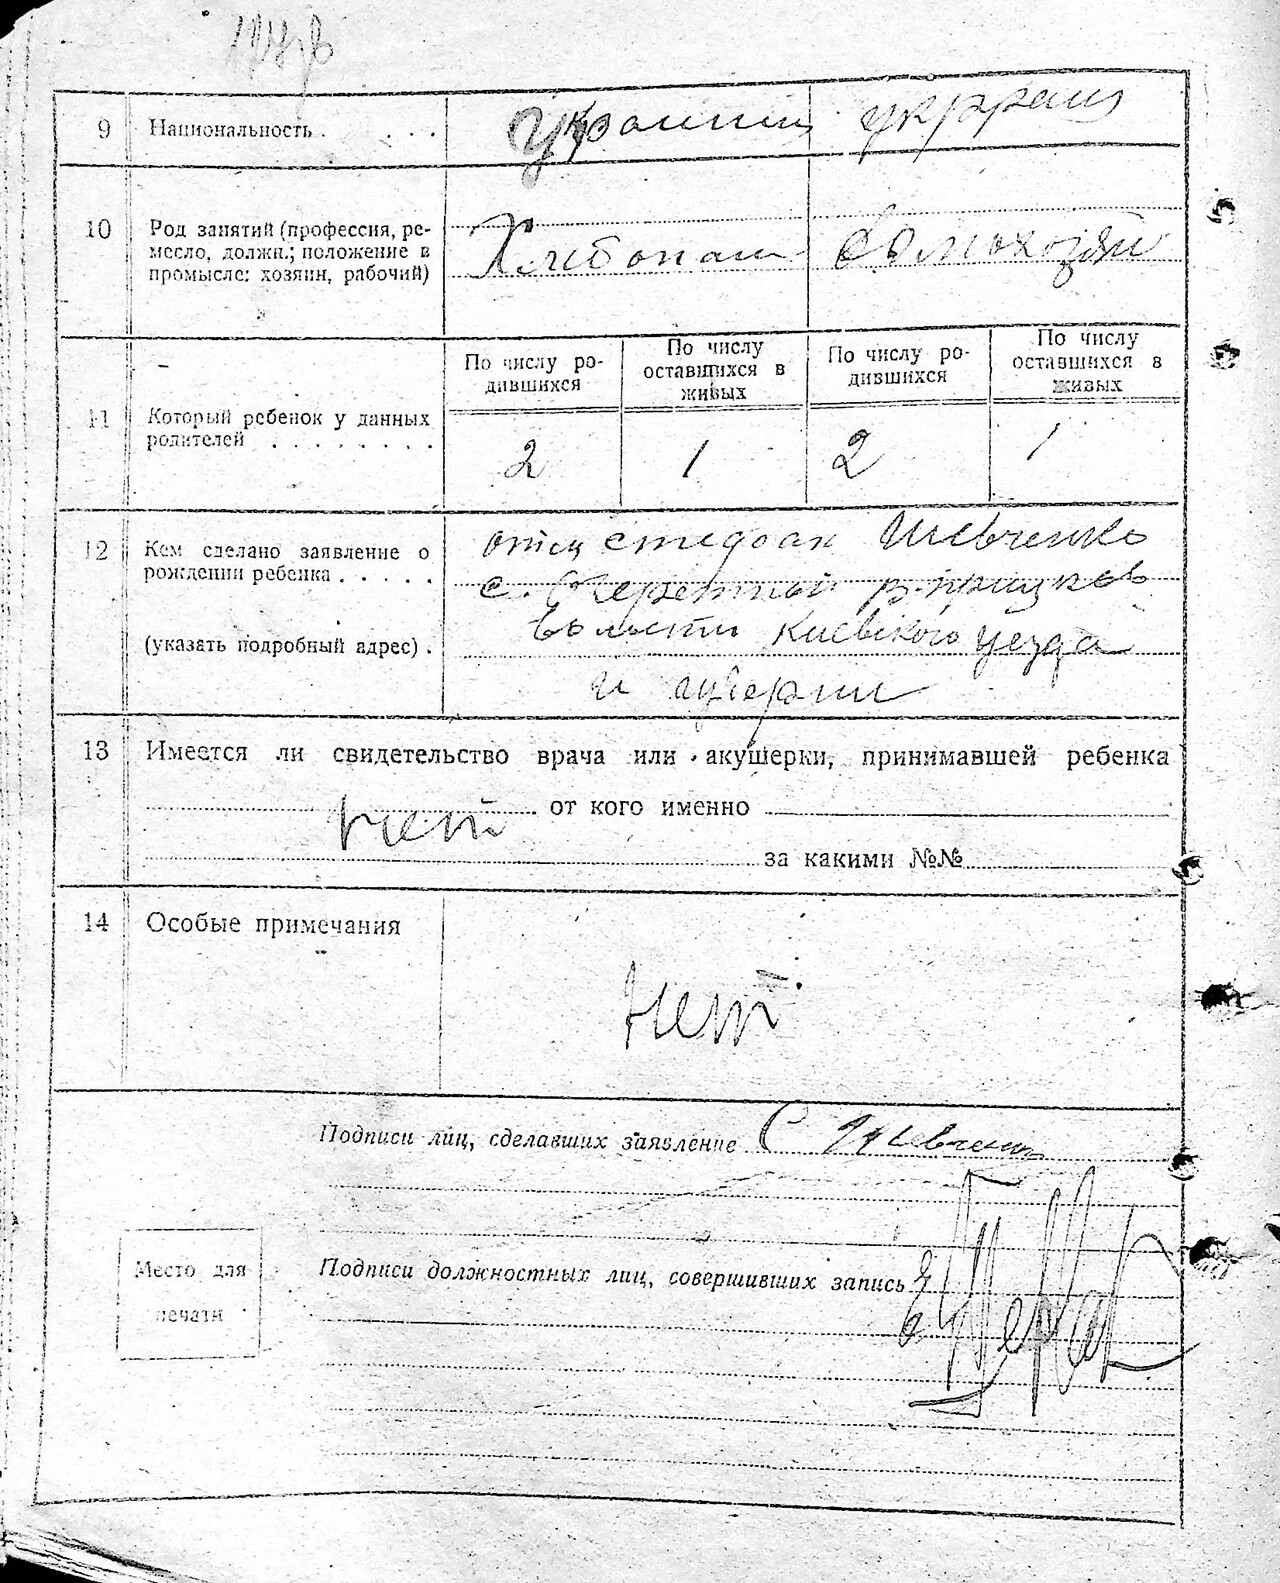 9 Национальность . . . .
украинец украин
10 Род занятий (профессия, ре-
месло, должн.; положение в
промысле: хозяин, рабочий)
Хлибопаш домохозяй
По числу ро-
дившихся
По числу
оставшихся в
живых
По числу ро-
дившихся
По числу
оставшихся в
живых
11 Который ребенок у данных
родителей . . . . . . . .
2 1 2 1
12 Кем сделано заявление о
рождении ребенка . . . . .
(указать подробный адрес) .
отец Шевченко
с.
волости Киевского уезда
и
13 Имеется ли свидетельство врача или акушерки, принимавшей ребенка
нет от кого именно
за какими №№
14 Особые примечания
нет
Подписи лиц, сделавших заявление С Шевченко
Место для
печати
Подписи должностных лиц, совершивших запись